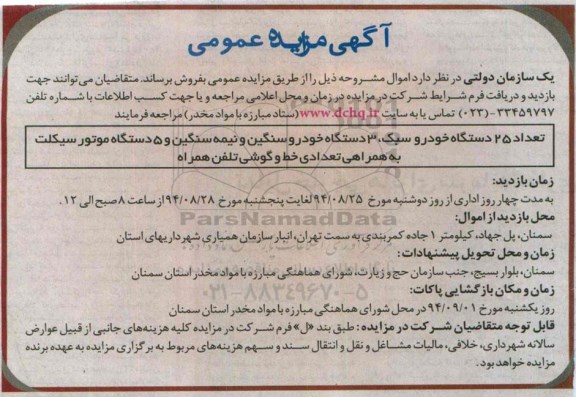 آگهی مزایده عمومی
یک سازمان دولتی در نظر دارد اموال مشروحه ذیل را از طریق مزایده عمومی بفروش برساند. متقاضیان می‌توانند جهت
بازدید و دریافت فرم شرایط شرکت در مزایده در زمان و محل اعلامی مراجعه و یا جهت کسب اطلاعات با شماره تلفن
۳۳۴۵۹۷۹۷ (۰۲۳) تماس یا به سایت www.dchq.ir (ستاد مبارزه با مواد مخدر) مراجعه فرمایند
تعداد ۲۵ دستگاه خودرو سبک، ۳ دستگاه خودرو سنگین و نیمه سنگین و ۵ دستگاه موتور سیکلت
به همراهی تعدادی خط و گوشی تلفن همراه
زمان بازدید:
به مدت چهار روز اداری از روز دوشنبه مورخ ۹۴/۰۸/۲۵ لغایت پنجشنبه مورخ ۹۴/۰۸/۲۸ از ساعت ۸ صبح الی ۱۲.
محل بازدید از اموال:
سمنان، پل جهاد، کیلومتر ۱ جاده کمربندی به سمت تهران، انبار سازمان همیاری شهرداریهای استان
زمان و محل تحویل پیشنهادات:
سمنان، بلوار بسیج، جنب سازمان حج و زیارت، شورای هماهنگی مبارزه با مواد مخدر استان سمنان
زمان و مکان بازگشایی پاکات:
روز یکشنبه مورخ ۹۴/۰۹/۰۱ در محل شورای هماهنگی مبارزه با مواد مخدر استان سمنان
قابل توجه متقاضیان شرکت در مزایده: طبق بند «ل» فرم شرکت در مزایده کلیه هزینه‌های جانبی از قبیل عوارض
سالانه شهرداری، خلافی، مالیات مشاغل و نقل و انتقال سند و سهم هزینه‌های مربوط به برگزاری مزایده به عهده برنده
مزایده خواهد بود.
ParsNamadData
۰۲۱-۸۸۳۴۹۶۷۰-۵